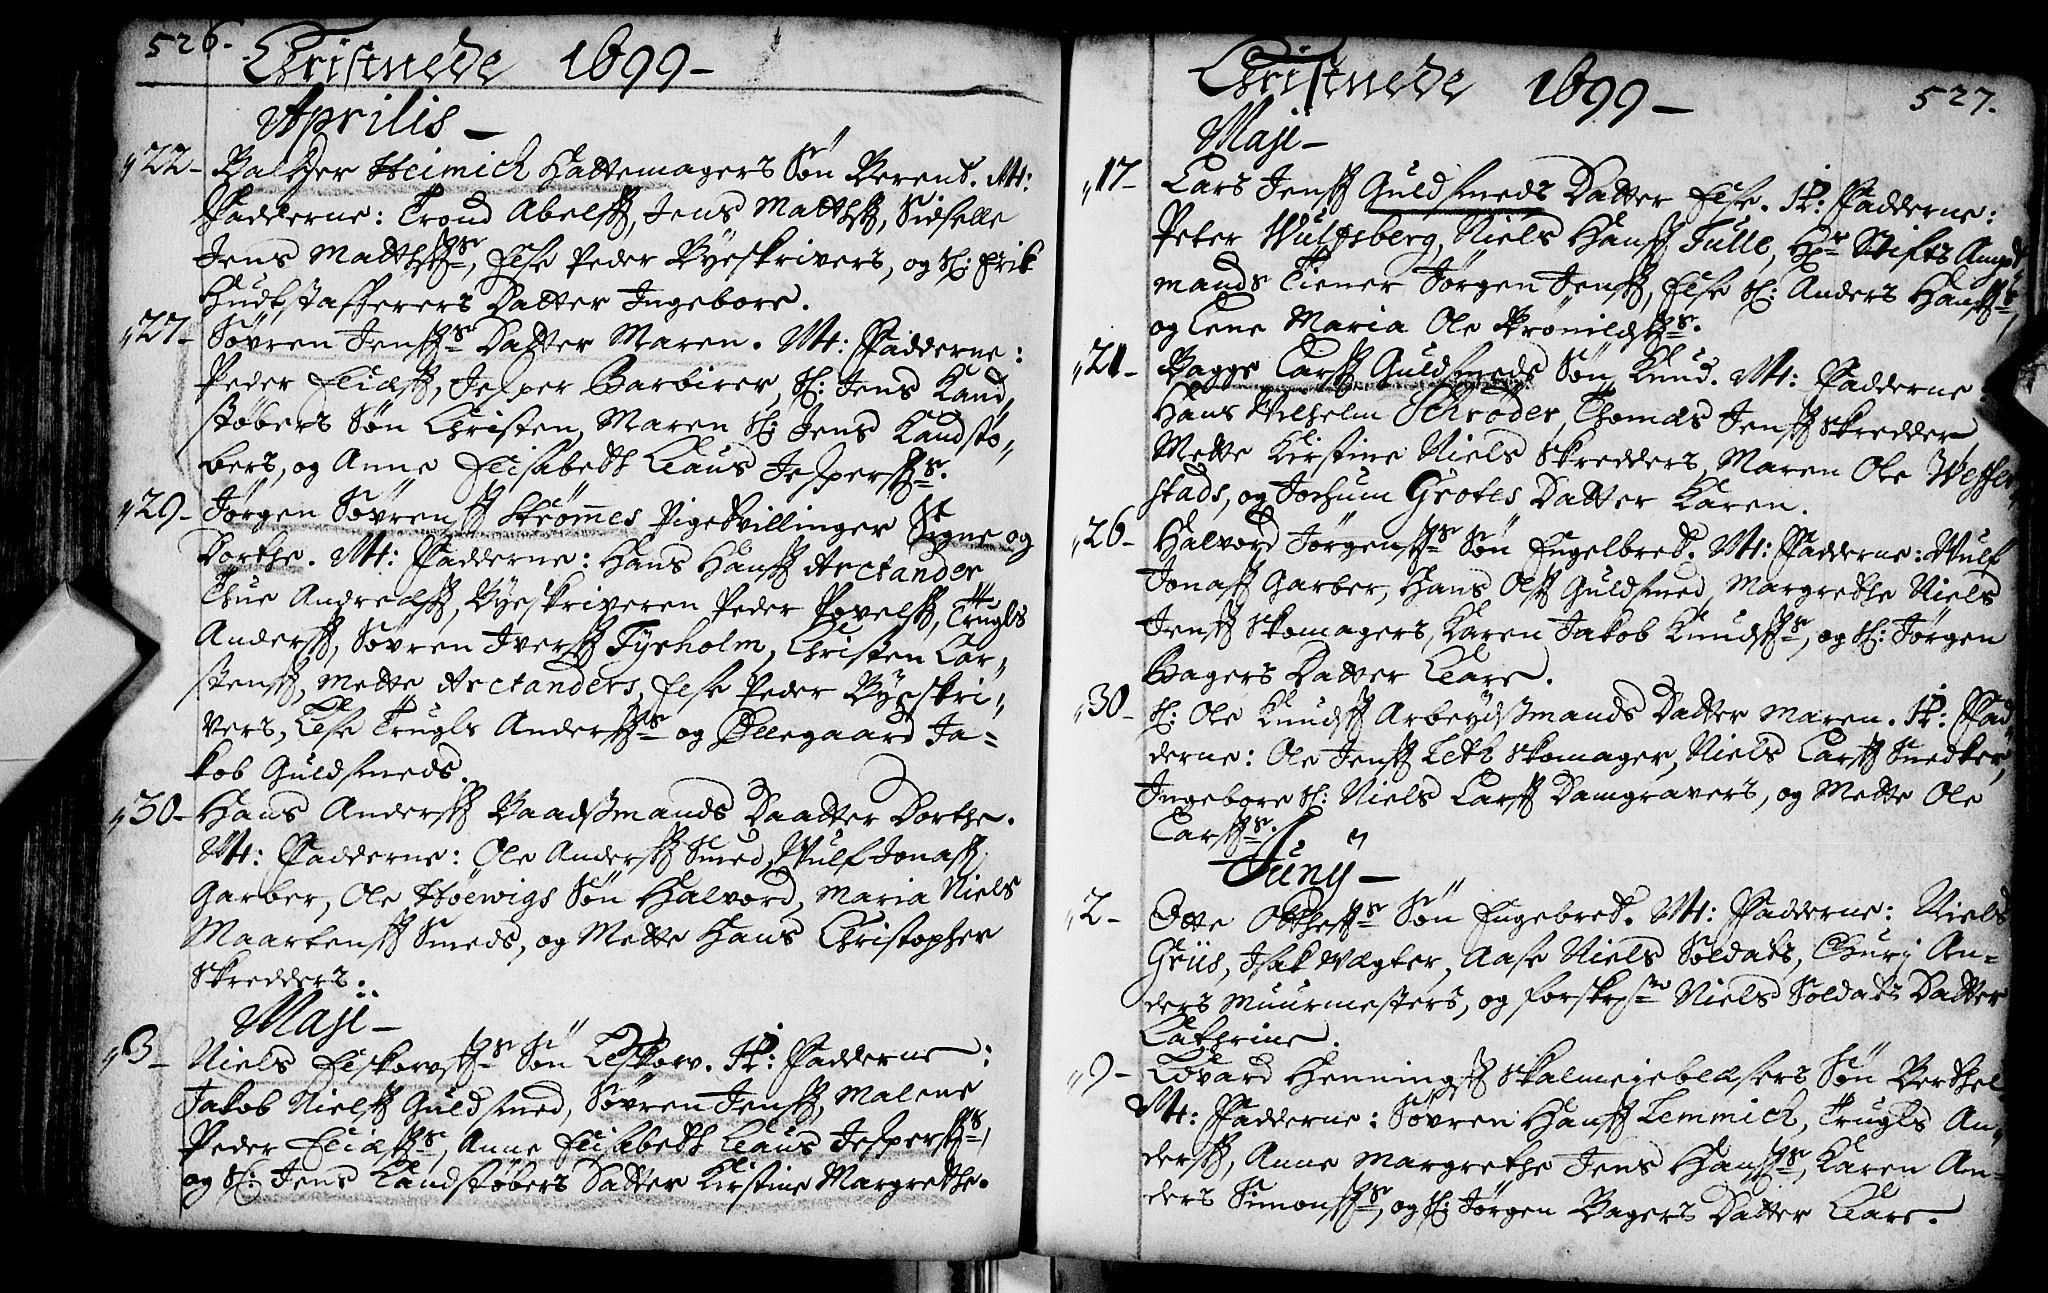 526.
Christnede 1699
Aprilis
22 Baltzer Heimich Hattemagers Søn Berent. M:
Fadderne: Trond Abelss, Jens Matthss, Sidselle
Jens Matthss, Else Peder Byeskrivers, og Sl: Erik
Datter Ingebore.
27 Søvren Jenss Datter Maren. M: Fadderne:
Peder Eliæss, Jesper Barbirer, Sl: Jens Kand,
støbers Søn Christen, Maren Sl: Jens Kandstø,,
bers, og Anne Elisabeth Claus Jesperss.
29 Jørgen Søvrenss Strømmes Pigetvillinger Signe og
Dorthe. M: Fadderne: Hans Hanss Arctander
Thue Andreæss, Byeskriveren Peder Povelss, Trugls
Anderss, Søvren Iverss Tyrholm, Christen Car,,
stenss, Mette Arctanders, Else Peder Byeskri,,
vers, Else Trugls Anderss og Ollegaard Ja=
kob Guldsmeds.
30 Hans Anderss Baadsmands Daatter Dorthe.
M: Fadderne: Ole Anderss Smed, Wulf Jonass
Garber, Ole Høewigs Søn Halvord, Maria Niels
Maartenss Smeds, og Mette Hans Christopher
Skredders.
Maji
3 Niels Eskorvss Søn Eskorv. H: Fadderne:
Jakob Nielss Guldsmed, Søvren Jenss, Malene
Peder Eliæss, Anne Elisabeth Claus Jesperss,
og Sl: Jens Kandstøbers Datter Kirstine Margrethe.
Christnede 1699
527.
Maji
17 Lars Jenss Guldsmeds Datter Else. H: Fadderne:
Peter Wulfsberg, Niels Hanss Tulle, Hr Stifts Ampt,,
mands Tiener Jørgen Jenss, Else Sl: Anders Hanss,
og Lene Maria Ole Brønildss.
21 Bagge Larss Guldsmeds Søn Knud. M: Fadderne:
Hans Wilhelm Schrøder, Thomas Jenss Skredder
Mette Kirstine Niels Skredders, Maren Ole Wesser,,
stads, og Jochum Grotes Datter Karen.
26 Halvord Jørgenss Søn Engelbret. M: Fadderne: Wulf
Jonass Garber, Hans Olss Guldsmed, Margrethe Niels
Jenss Skomagers, Karen Jakob Knudss, og Sl: Jørgen
Bagers Datter Clare.
30 Sl: Ole Knudss Arbeydsmands Datter Maren. H: Fad,,
derne: Ole Jenss Leth Skomager, Niels Larss Snedker,
Ingebore Sl: Niels Larss Damgravers, og Mette Ole
Larss.
Juny
2 Otte Otthess Søn Engebret. M: Fadderne: Niels
Grüs, Isak Wægter, Aase Niels Soldats, Gury An=
ders Muurmesters, og Niels Soldats Datter
Cathrine.
9 Edvard Hennings Skalmeieblæsers Søn Berthel
M: Fadderne: Søvren Hanss Lemmich, Trugls An,,
derss, Anne Margrethe Jens Hanss, Karen An=
ders Simonss, og Sl: Jørgen Bagers Datter Clare.